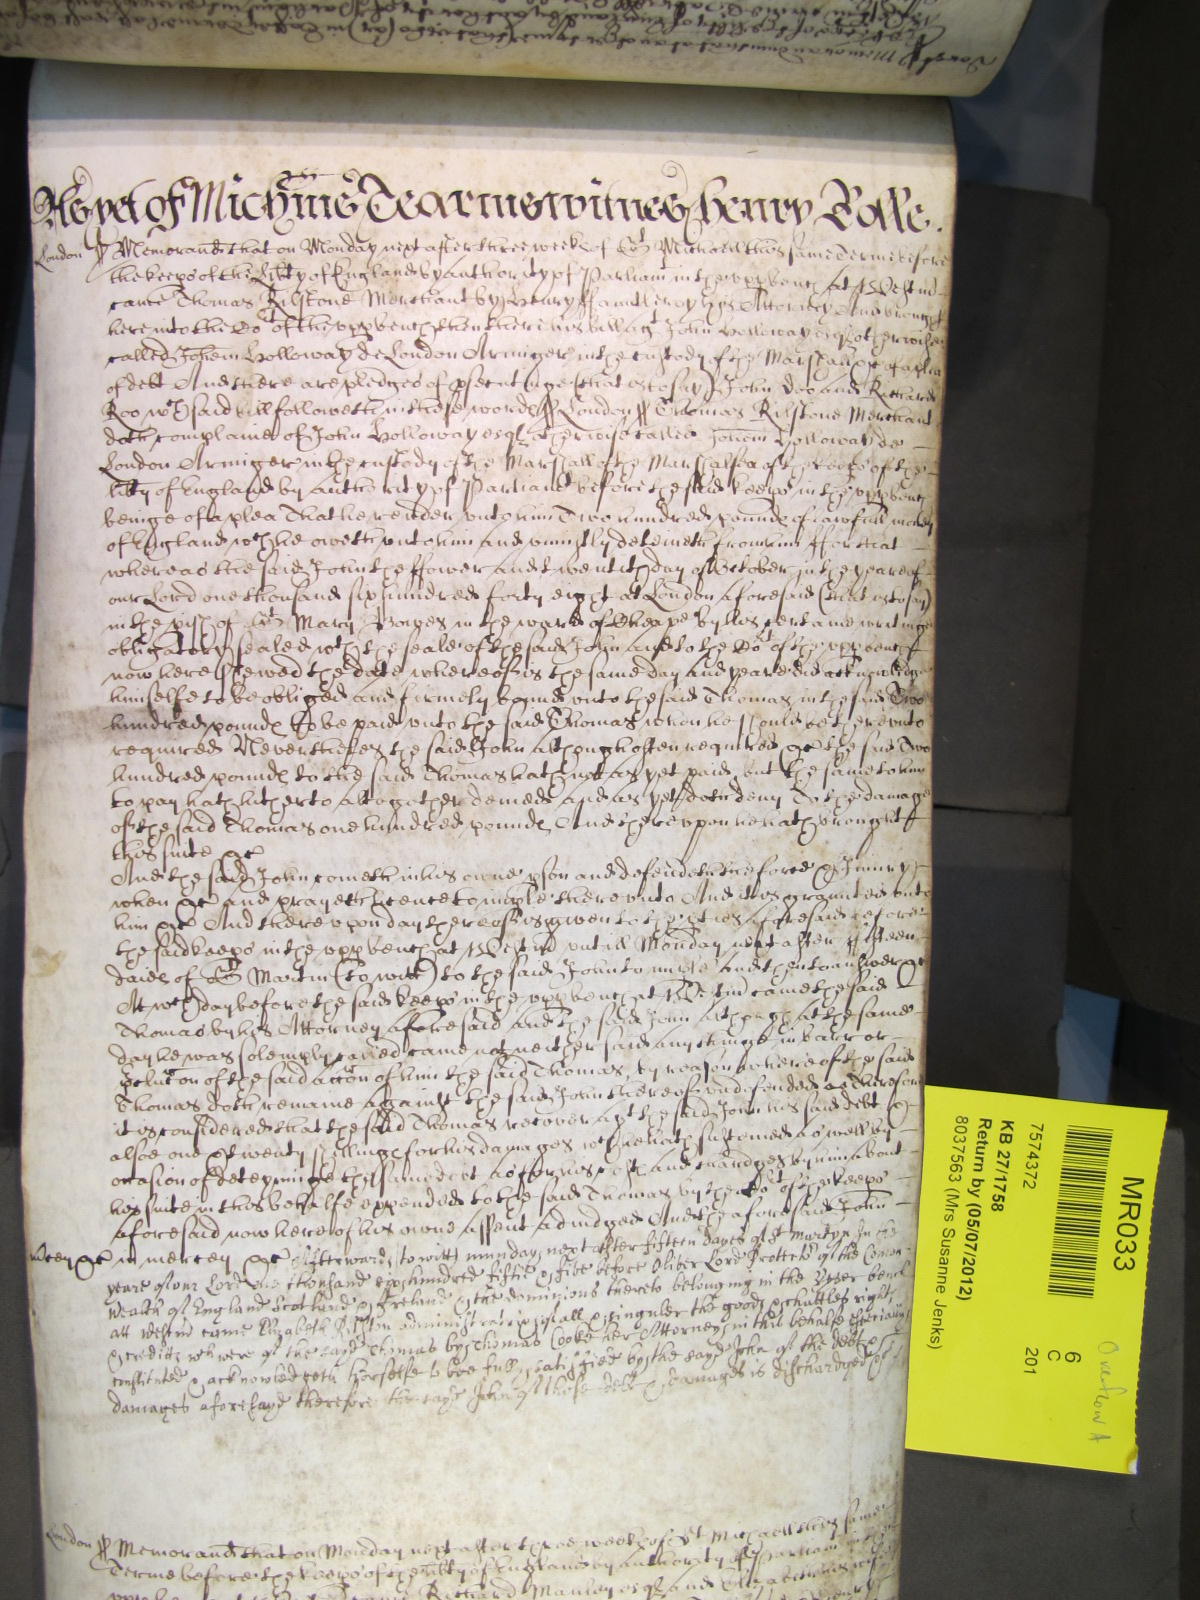 As yet of Michms Tearme witnes Henry Rolle.
London ss Memorand that on Monday next after three weekes of St Michaell this same Terme before
the keeps of the Libty of England by authority of Parliam in the upp bench at Westm
came Thomas Rilstone Merchant by Henry Fauntleroy his Attorney And brought
here into the Co't of the upp bench then there his bill agt John Holloway esq otherwise
called Johem Holloway de London Armiger in the custody of the Marshall &c of a plea
of debt And there are pledges of psecutinge (that is to say) John Doo and Richard
Roo wch said bill followeth in these words ss London ss Thomas Rilstone Merchant
doth complaine of John Holloway esq otherwise called Johem Holloway de
London Armiger in the custody of the Marshall of the Marshalsea of the keeps of the
libty of England by authority of Parliam before the said keeps in the upp bench
beinge of a plea That he render unto him Two hundred pounds of lawfull money
of England wch he oweth unto him and uniustly deteineth from him For that
whereas the said John the fower and twentith day of October in the yeare of
our Lord one thousand six hundred forty eight at London aforesaid (that is to say)
in the pish of St Mary Bowes in the ward of Cheape by his certaine writinge
obligatory sealed wth the seale of the said John and to the Co't of the upp bench
now here shewed the date whereof is the same day and yeare did acknowledge
himselfe to be obliged and firmely bound unto the said Thomas in the said Two
hundred pounds to be paid unto the said Thomas when he should be thereunto
required Neverthelesse the said John although often required &c the said Two
hundred pounds to the said Thomas hath not as yet paid but the same to him
to pay hath hitherto altogether denied and as yet doth deny To the damage
of the said Thomas one hundred pounds And thereupon he hath brought
this suite &c
And the said John cometh in his owne pson and defendeth the force & Iniury
when &c and prayeth licence to imple thereunto And it is granted unto
him &c And thereupon day thereof is given to the pties aforesaid before
the said keeps in the upp bench at Westm untill Monday next after fifteen
daies of St Martin (to witt) to the said John to imple and then to answer &c
At wch day before the said keeps in the upp bench at Westm came the said
Thomas by his Attorney aforesaid And the said John although at the same
day he was solemply called came not neither said any thinge in barr or
of the said accon of him the said Thomas, by reason whereof the said
Thomas doth remaine against the said John thereof undefended &c Therefore
it is considered that the said Thomas recover agt the said John his said debt &
alsoe one & twenty shillings for his damages wch he hath susteined as well by
occasion of deteyninge the same debt as for his costs and chardges by him about
his suite in this behalfe expended to the said Thomas by the Co't of the keeps
aforesaid now here of his owne assent adiudged And the aforesaid John
mercy &c in mercy &c Afterwards to witt munday next after fifteen dayes of St Martyn In the
yeare of our Lord one thousand sixe hundred fiftie & five before Oliver Lord Protector of the Comon
wealth of England Scotland & Ireland & the dominions thereto belonging in the Upper bench
att Westm came Elizabeth Rilston administratrix of all & singuler the goods & chattles rights
& credits wch were of the sayd Thomas by Thomas Cooke her Attorney in this behalfe especially
constituted & acknowledgeth herselfe to bee fully satisfied by the sayd John of the debt &
damages aforesayd therefore the sayd John of those debt & damages is dischardged &c
London ss Memorand that on Monday next after three weekes of St Michaell this same
Terme before the keeps of the libty of England by authority of Parliam in the
Richard Manley esq and Elizabeth his wife
MR033
6
C
201
7574372
KB 27/1758
Return by (05/07/2012)
8037563 (Mrs Susanne Jenks)
Overflow A